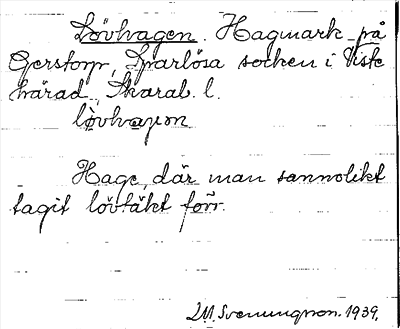 Lövhagen. Hagmark på
Gerstorp, Sparlösa socken i Viste
härad, Skarab. l.
lövhagɷn
Hage, där man sannolikt
tagit lövtäkt förr.
Svenungson. 1939.